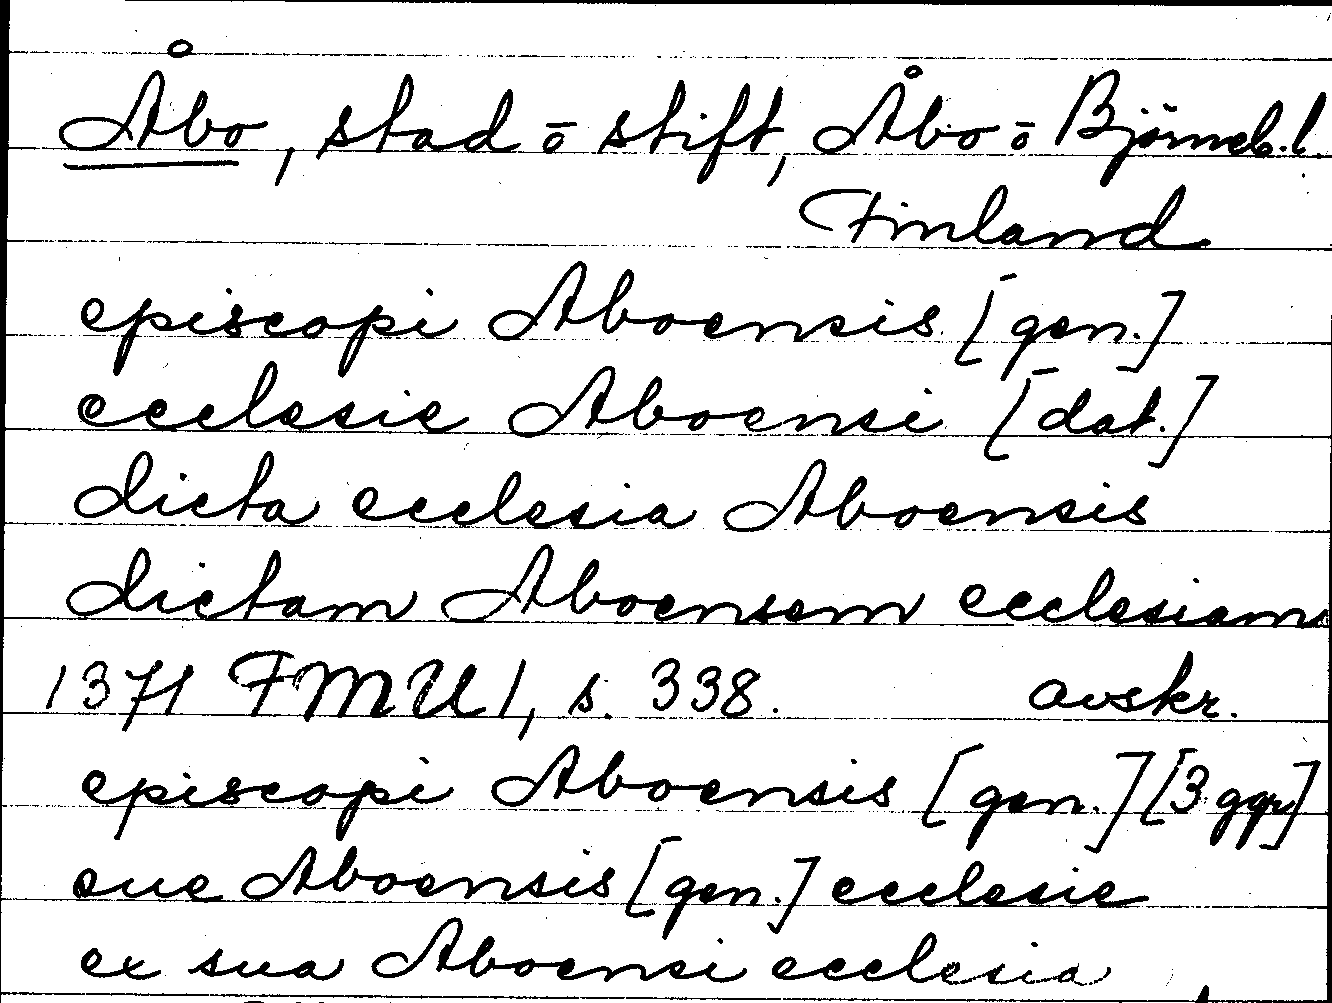 Åbo, stad o stift, Åbo o Björneb. l.
Finland
episcopi Aboensis [gen.]
ecclesie Aboensi [dat.]
dicta ecclesia Aboensis
dictam Aboensem ecclesiam
1371 FMU 1, s. 338. avskr.
episcopi Aboensis [gen.] [3 ggr]
sue Aboensis [gen.] ecclesie
ex sua Aboensi ecclesia